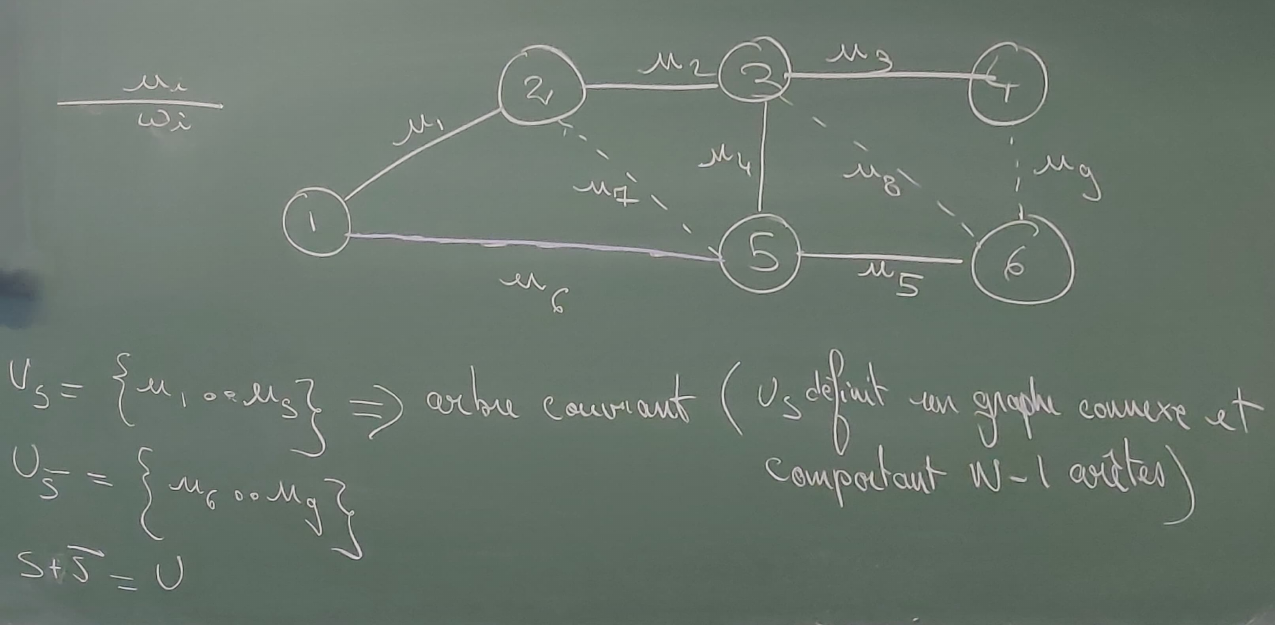 u₁
u₂
u₃
2
3
4
uᵢ
ωᵢ
u₄
u₈
u₉
u₇
1
5
6
u₆
u₅
U_S = {u₁ ... u₅} ⇒ arbre couvrant (U_S définit un graphe connexe et
comportant N-1 arêtes)
U_S̅ = {u₆ ... u₉}
S + S̅ = U